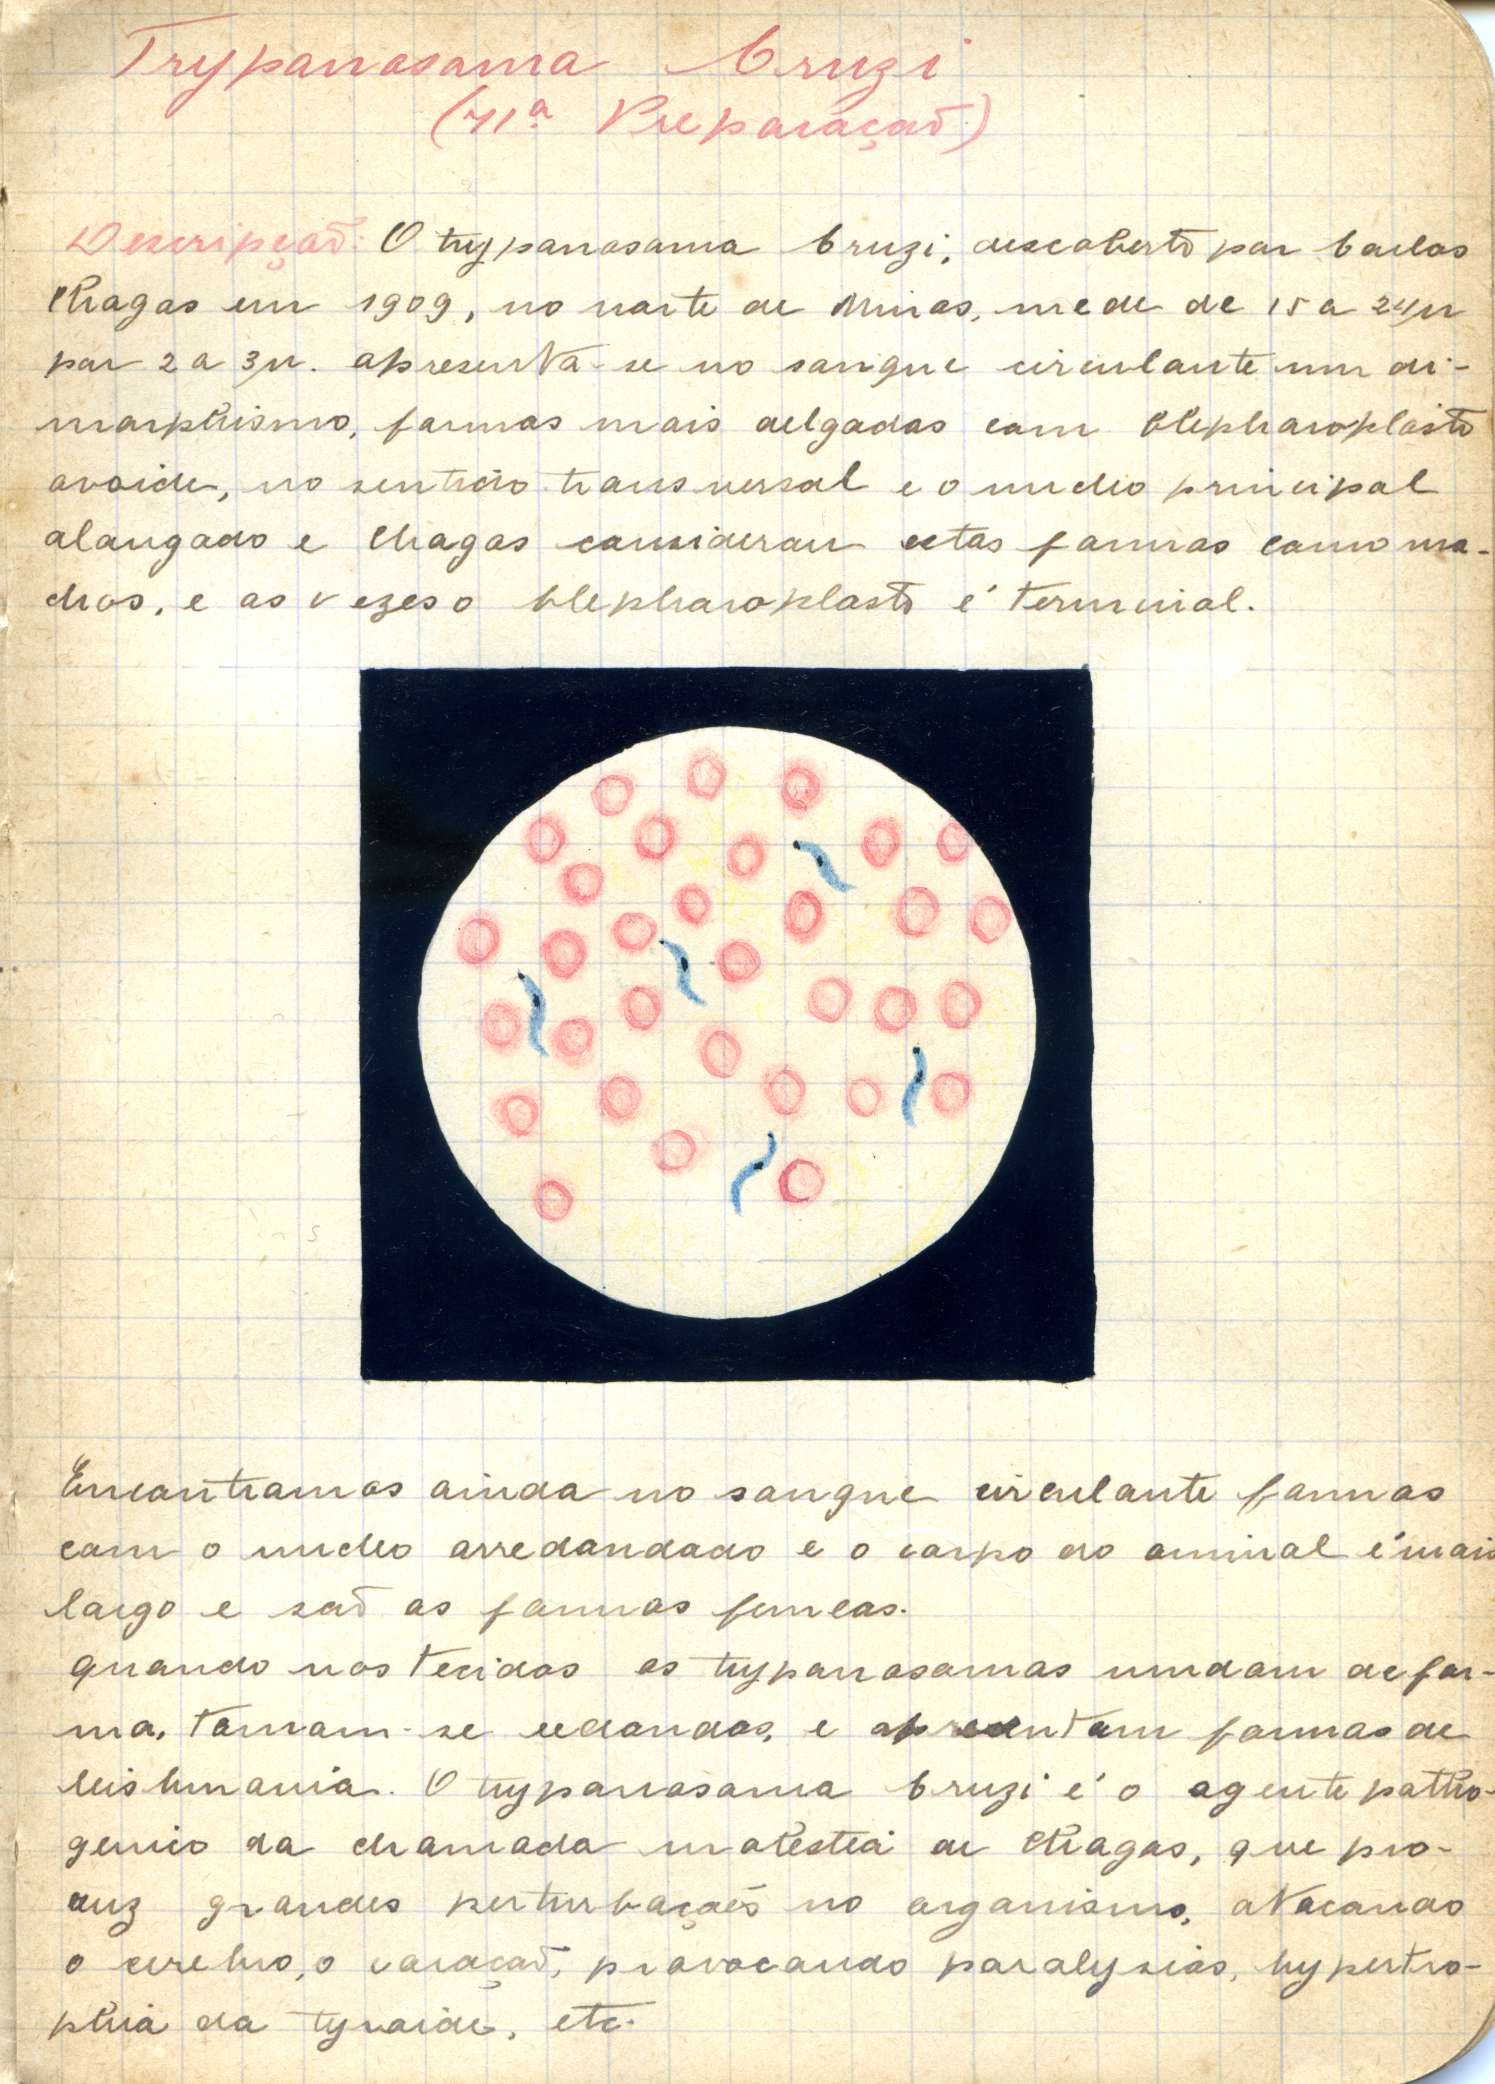 Trypanosoma Cruzi
(71ª Preparação)
Descripção: O trypanosoma Cruzi, descoberto por Carlos
Chagas em 1909, no norte de Minas, mede de 15 a 24µ
por 2 a 3µ. apresenta-se no sangue circulante um di-
morphismo, formas mais delgadas com blepharoplasto
ovoide, no sentido transversal e o nucleo principal
alongado e Chagas consideram estas formas como ma-
chos, e as vezes o blepharoplasto é terminal.
Encontramos ainda no sangue circulante formas
com o nucleo arredondado e o corpo do animal é mais
largo e são as formas femeas.
quando nos tecidos os trypanosomas mudam de for-
ma, tornam-se redondos, e apresentam formas de
leishmania. O trypanosoma Cruzi é o agente patho-
genico da chamada molestia de Chagas, que pro-
duz grandes perturbações no organismo, atacando
o cerebro, o coração, provocando paralysias, hypertro-
phia da tyroide, etc.